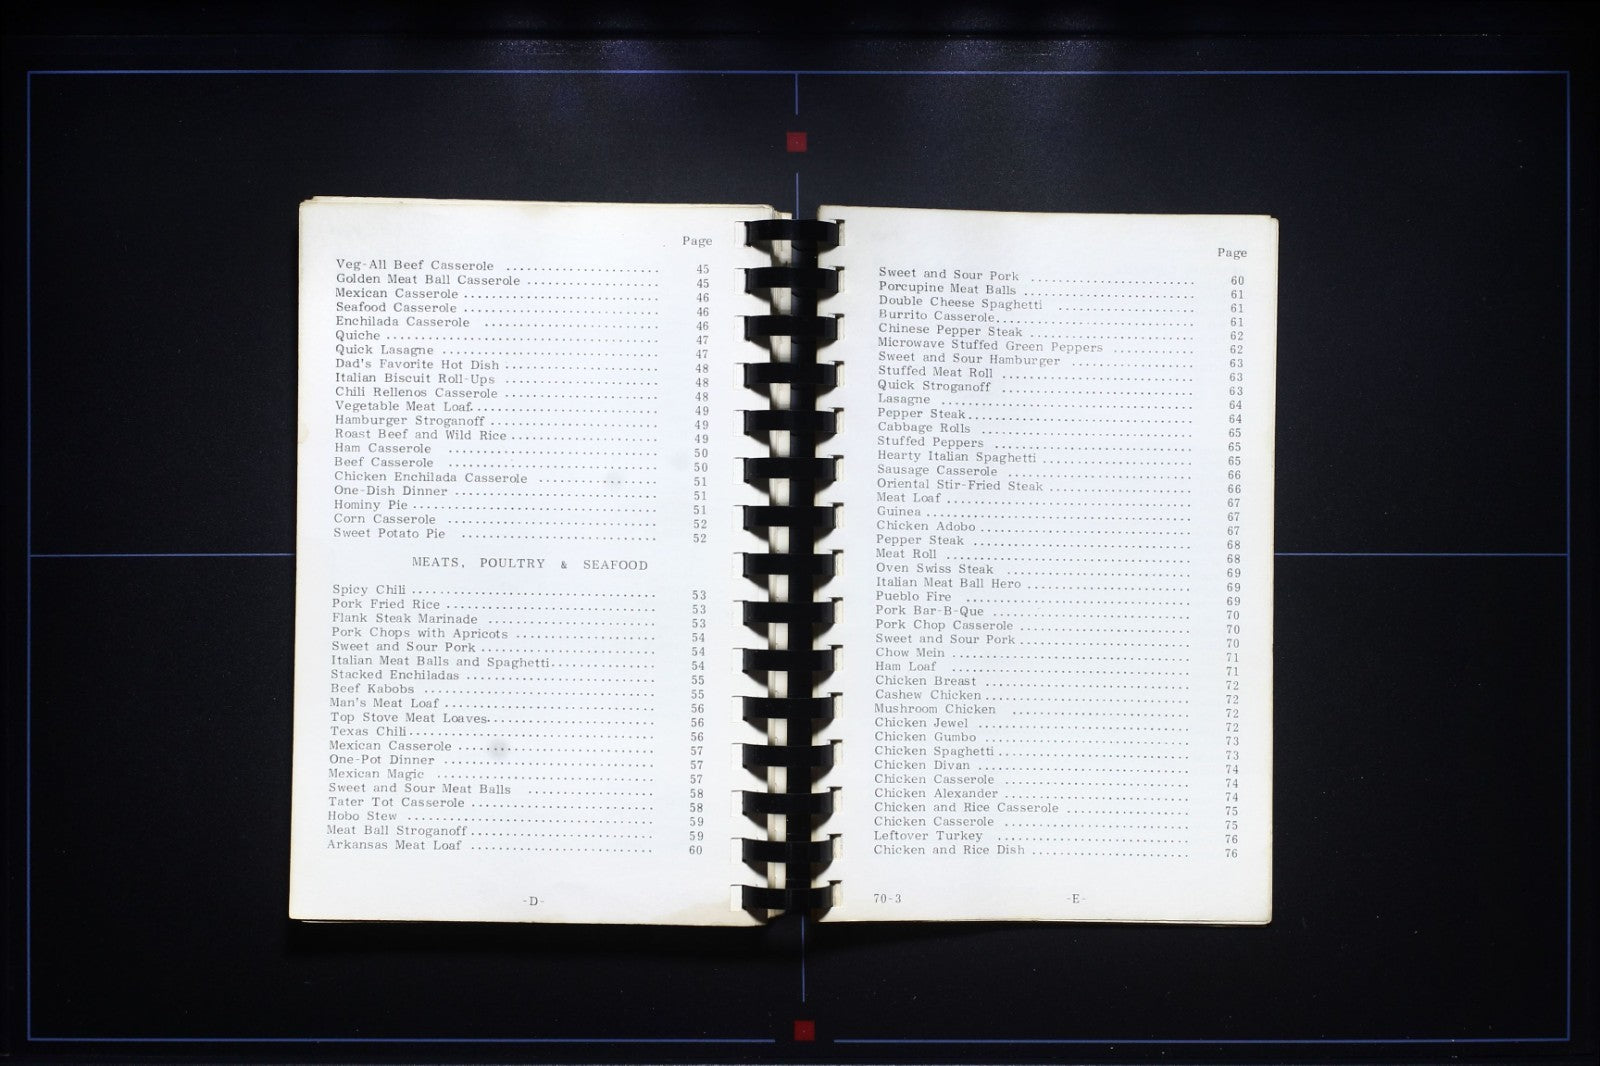 Page
Veg-All Beef Casserole ...................... 45
Golden Meat Ball Casserole ................... 45
Mexican Casserole ............................ 46
Seafood Casserole ............................ 46
Enchilada Casserole ......................... 46
Quiche ....................................... 47
Quick Lasagne ............................... 47
Dad's Favorite Hot Dish ...................... 48
Italian Biscuit Roll-Ups ...................... 48
Chili Rellenos Casserole ...................... 48
Vegetable Meat Loaf........................... 49
Hamburger Stroganoff ........................ 49
Roast Beef and Wild Rice ..................... 49
Ham Casserole .............................. 50
Beef Casserole .............................. 50
Chicken Enchilada Casserole ................. 51
One-Dish Dinner ............................. 51
Hominy Pie ................................... 51
Corn Casserole .............................. 52
Sweet Potato Pie ............................ 52
MEATS, POULTRY & SEAFOOD
Spicy Chili ................................... 53
Pork Fried Rice .............................. 53
Flank Steak Marinade ........................ 53
Pork Chops with Apricots .................... 54
Sweet and Sour Pork ......................... 54
Italian Meat Balls and Spaghetti............... 54
Stacked Enchiladas ........................... 55
Beef Kabobs ................................. 55
Man's Meat Loaf .............................. 56
Top Stove Meat Loaves........................ 56
Texas Chili................................... 56
Mexican Casserole ............................ 57
One-Pot Dinner .............................. 57
Mexican Magic ............................... 57
Sweet and Sour Meat Balls .................. 58
Tater Tot Casserole .......................... 58
Hobo Stew ................................... 59
Meat Ball Stroganoff.......................... 59
Arkansas Meat Loaf .......................... 60
-D-
Page
Sweet and Sour Pork ........................ 60
Porcupine Meat Balls ......................... 61
Double Cheese Spaghetti .................... 61
Burrito Casserole............................. 61
Chinese Pepper Steak ........................ 62
Microwave Stuffed Green Peppers ............ 62
Sweet and Sour Hamburger .................. 63
Stuffed Meat Roll ............................ 63
Quick Stroganoff ............................ 63
Lasagne .................................... 64
Pepper Steak................................. 64
Cabbage Rolls ............................... 65
Stuffed Peppers ............................. 65
Hearty Italian Spaghetti ...................... 65
Sausage Casserole ........................... 66
Oriental Stir-Fried Steak ..................... 66
Meat Loaf .................................... 67
Guinea ....................................... 67
Chicken Adobo ............................... 67
Pepper Steak ................................ 68
Meat Roll .................................... 68
Oven Swiss Steak ........................... 69
Italian Meat Ball Hero ........................ 69
Pueblo Fire ................................. 69
Pork Bar-B-Que ............................. 70
Pork Chop Casserole ......................... 70
Sweet and Sour Pork ......................... 70
Chow Mein ................................... 71
Ham Loaf ................................... 71
Chicken Breast ............................... 72
Cashew Chicken .............................. 72
Mushroom Chicken .......................... 72
Chicken Jewel ............................... 72
Chicken Gumbo .............................. 73
Chicken Spaghetti ............................ 73
Chicken Divan ............................... 74
Chicken Casserole ........................... 74
Chicken Alexander ........................... 74
Chicken and Rice Casserole ................. 75
Chicken Casserole ........................... 75
Leftover Turkey ............................ 76
Chicken and Rice Dish ....................... 76
70-3 -E-